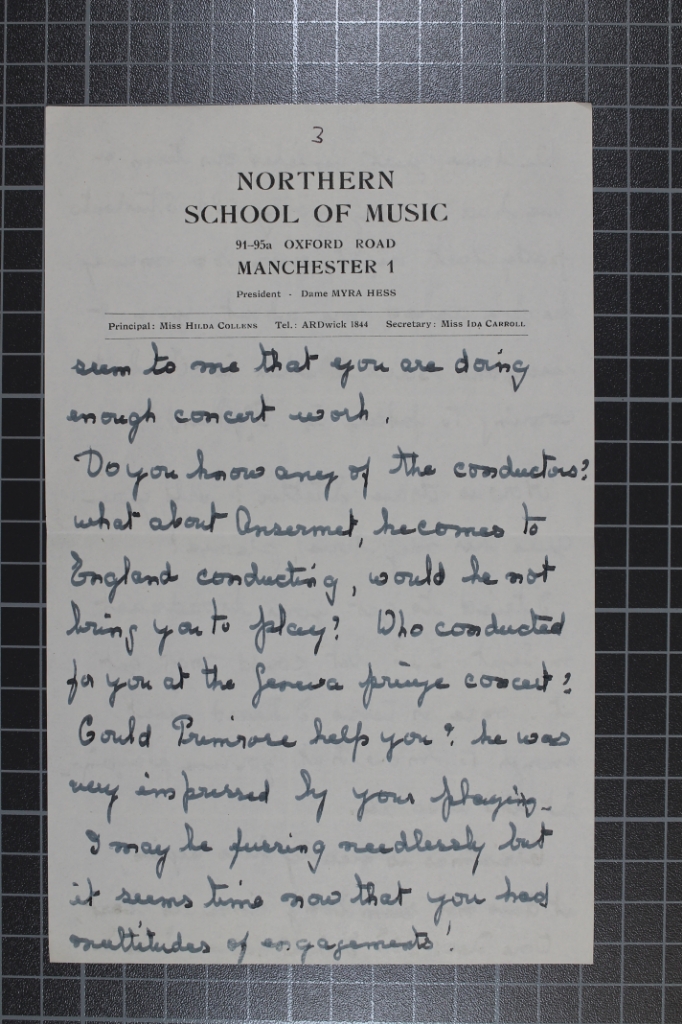 3
NORTHERN
SCHOOL OF MUSIC
91-95a OXFORD ROAD
MANCHESTER 1
President - Dame MYRA HESS
Principal: Miss HILDA COLLENS Tel.: ARDwick 1844 Secretary: Miss IDA CARROLL
seem to me that you are doing
enough concert work.
Do you know any of the conductors?
what about Ansermet, he comes to
England conducting, would he not
bring you to play? Who conducted
for you at the Geneva prize concert?
Could Primrose help you? he was
very impressed by your playing.
I may be fussing needlessly but
it seems time now that you had
multitudes of engagements!